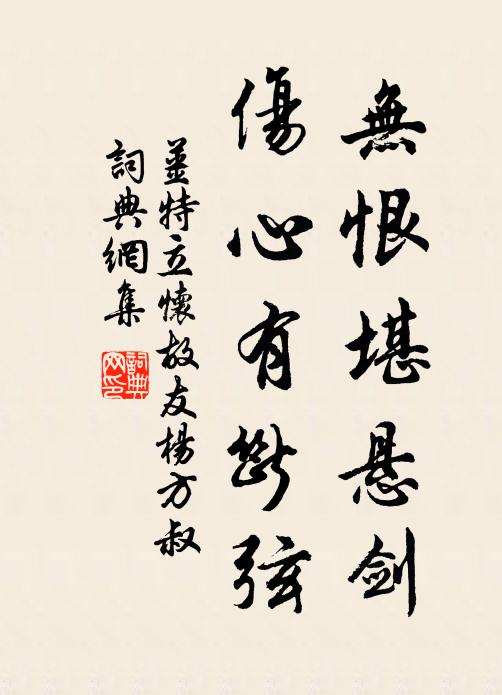 無恨堪悬剑
傷心有斷弦
薑特立懷故友楊方叔
詞典網集
詞典
网印